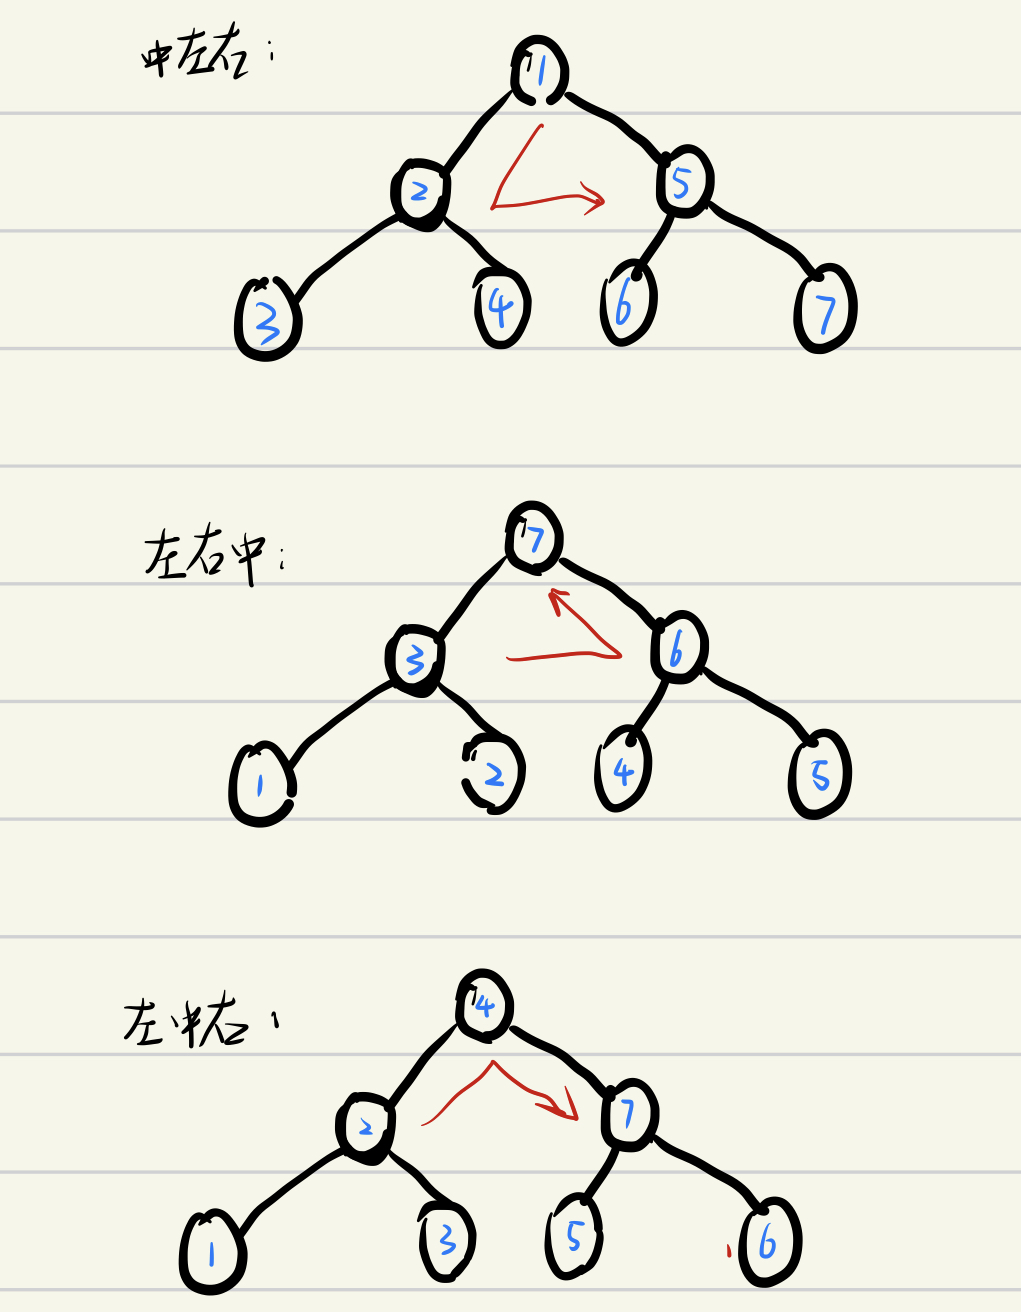 中左右:
1
2 5
3 4 6 7
左右中:
7
3 6
1 2 4 5
左中右:
4
2 7
1 3 5 6